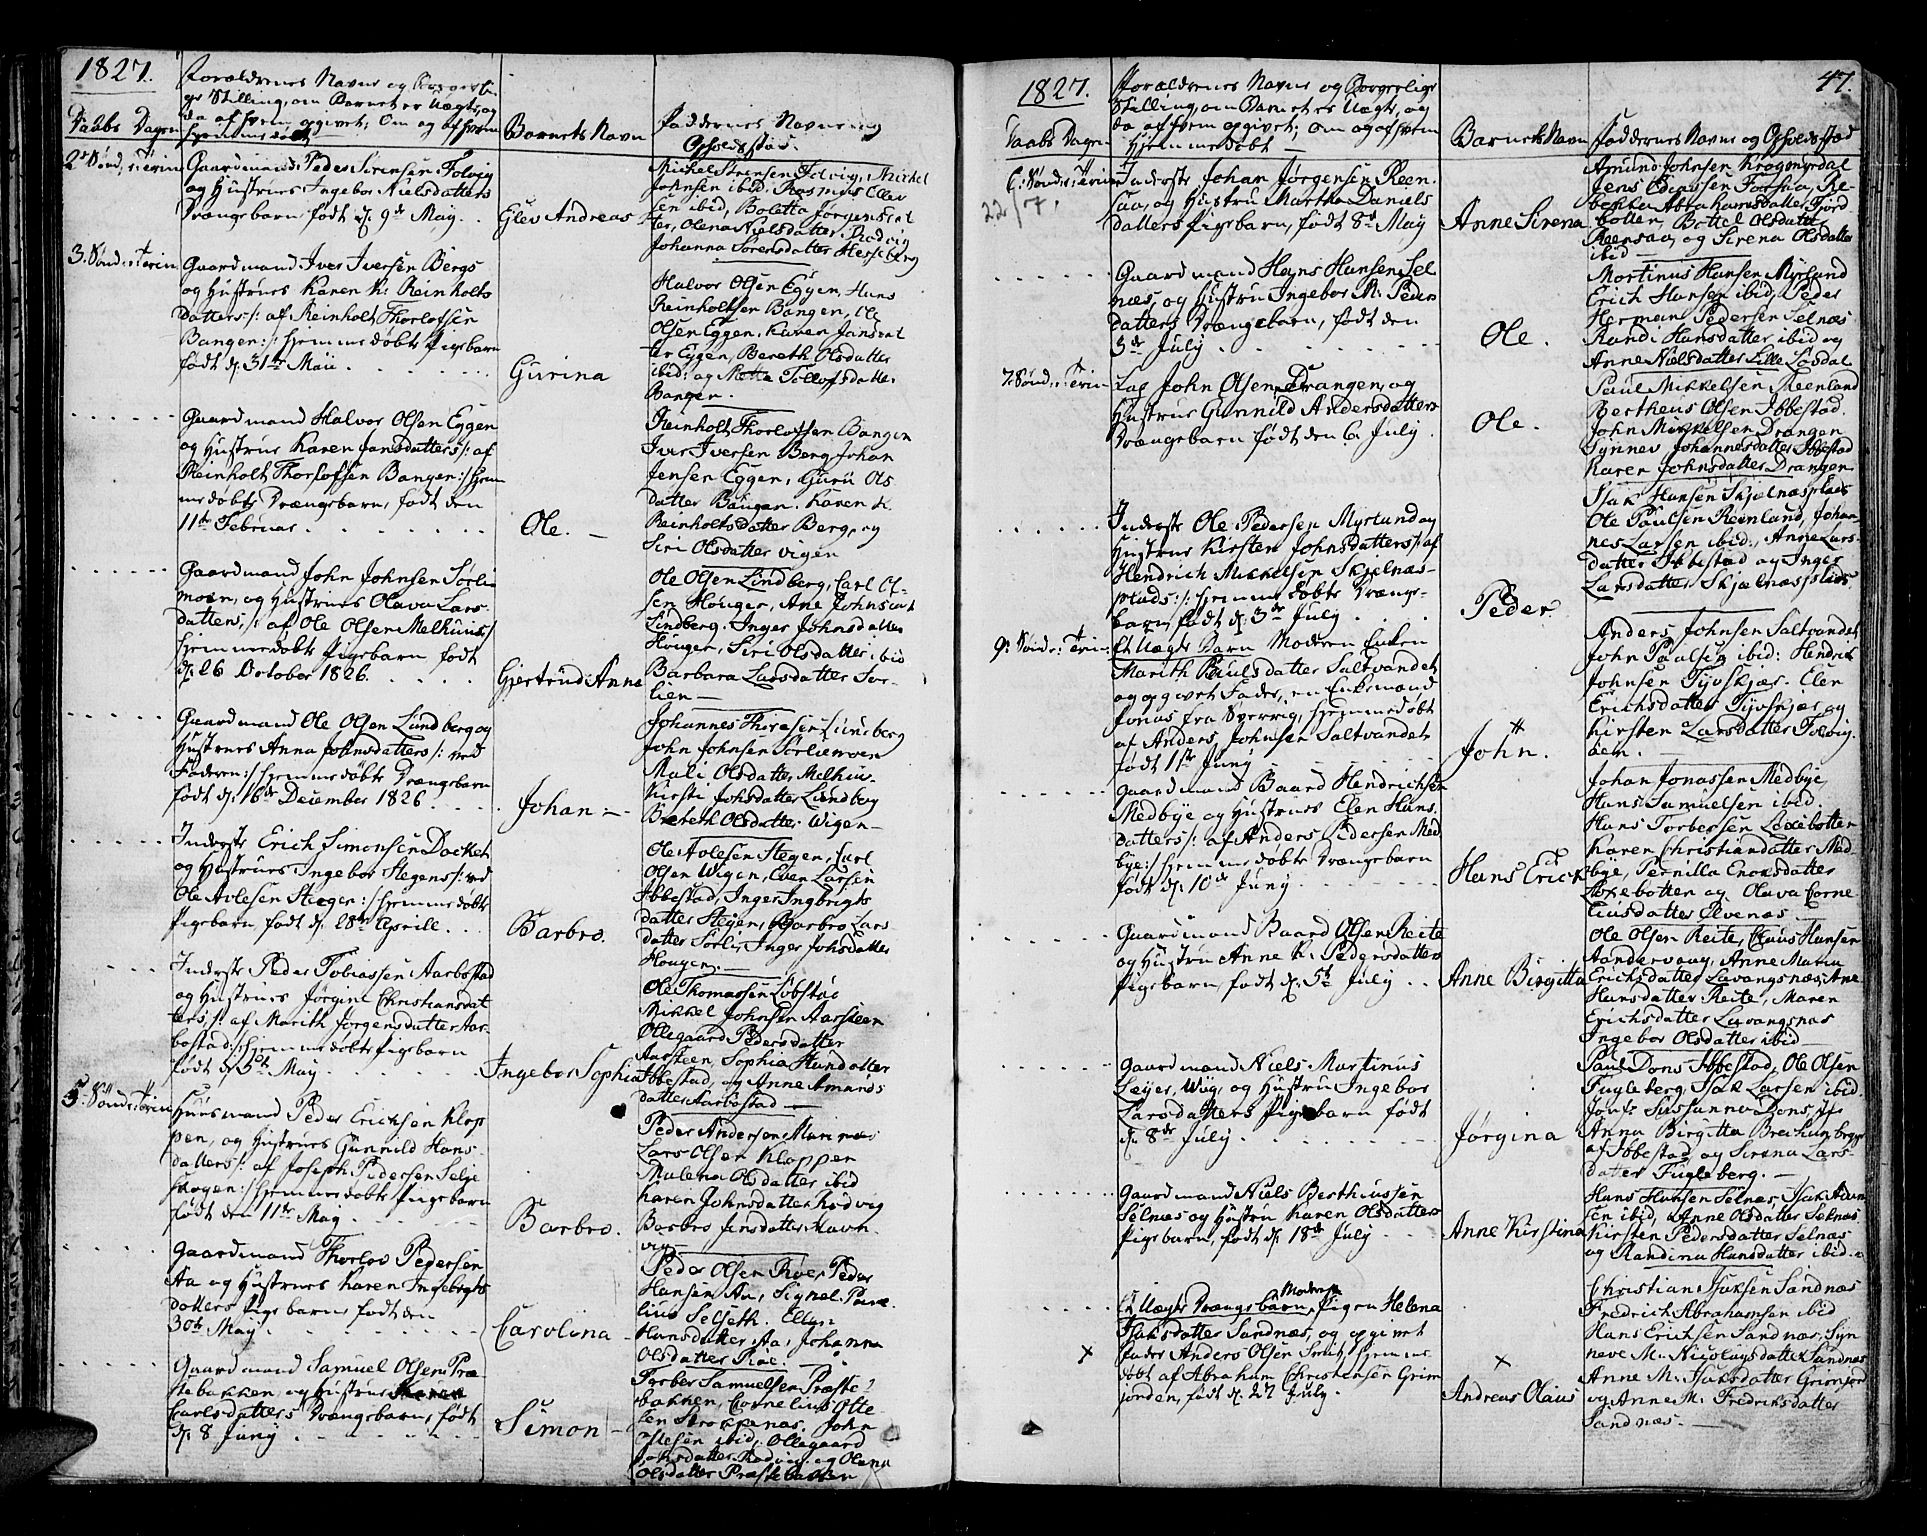 1827.
Forældrenes Navne og Borgerli-
ge Stilling, om Barnet er Uægte, og
da af hvem opgivet; Om og af hvem
hjemmedøbt
Daabs Dagen
Barnets Navn
Faddernes Navne og
Opholdsstæd.
2 Sønd: Trin:
Gaardmand Peder Sörensen Folvig
og Hustrues Ingebor Nielsdatters
Drængebarn født d. 9de May.
Elev Andreas
Michel Sörensen Folvig, Mikkel
Johnsen ibid: Rasmus Elev
sen ibid, Boletta Jørgensdat
ter, Olena Nielsdatter Rodvig
Johanna Sörensdatter Hesseberg
3. Sønd: Trin:
Gaardmand Iver Iversen Bergs
og Hustrues Karen K: Reinholts
datters /: af Reinholt Thorlofsen
Bangen :/ hjemmedøbte Pigebarn
født d. 31te Maii
Gurina
Halvor Olsen Eggen, Hans
Reinholtsen Bangen, Ole
Olsen Eggen, Karen Jansdat
ter Eggen, Bereth Olsdatter
ibid: og Mette Tollofsdatter
Bangen.
Gaardmand Halvor Olsen Eggen
og Hustrues Karen Jansdatters /: af
Reinholt Thorlofsen Bangen :/ hjem
medøbte Drængebarn, født den
11te Februar
Ole.
Reinholt Thorlofsen Bangen
Iver Iversen Berg, Johan
Jensen Eggen, Guru Ols
datter Bangen. Karen K.
Reinholtsdatter Berg, og
Siri Olsdatter Vigen
Gaardmand John Johnsen Sörlie
moen, og Hustrues Olava Lars-
datters, /: af Ole Olsen Melhuus :/
hjemmedøbte Pigebarn født
d. 26 October 1826.
Gjertrud Anna
Ole Olsen Lindberg, Carl Ol-
sen Houger, Ane Johnsdat
Lindberg. Inger Johnsdatter
Houger, Siri Olsdatter ibid
Barbara Larsdatter Sör-
lien
Gaardmand Ole Olsen Lundberg og
Hustrues Anna Johnsdatters /: ved
Faderen :/ hjemmedøbte Drængebarn
født d. 16de December 1826
Johan
Johannes Thoresen Lundberg
John Johnsen Sörliemoen
Mali Olsdatter Melhus.
Kirsti Johsdatter Lundberg
Bereth Olsdatter Wigen
Inderste Erich Simonsen Docket
og Hustrues Ingebor Stegens /: ved
Ole Avlesen Stegen :/ hjemmedøbte
Pigebarn født d. 28de Aprill.
Barbro.
Ole Avlesen Stegen, Carl
Olsen Wigen, Even Larsen
Ibbestad, Inger Ingbrigts
datter Stegen, Barbro Lars
datter Sörli, Inger Johsdatter
Hougen.
Inderste Peder Tobiassen Aarbostad
og Hustrues Jørgine Christiansdat
ters, /: af Marith Jørgensdatter Aar-
bostad :/ hjemmedøbte Pigebarn
født d. 5te May
Ingebor Sophia
Ole Thomassen Löbstac
Mikkel Johnsen Aarsteen
Ollegaard Pedersdatter
Aarsteen Sophia Hansdatter
Ibbestad, og Anne Amunds
datter Aarbostad
5. Sønd: Trin:
Huusmand Peder Erichsen Klop
pen, og Hustrues Gunnild Hans-
datters /: af Joseph Pedersen Selje
skogen :/ hjemmedøbte Pigebarn
født den 11te May
Barbro.
Peder Andersen Marines
Lars Olsen Kloppen
Malena Olsdatter ibid
Karen Johnsdatter Rødvig
Barbro Jensdatter Havn-
vig
Gaardmand Thorlov Pedersen
Aa og Hustrues Karen Ingebrigts
datters Pigebarn, født den
30te May
Carolina
Peder Olsen Roe, Peder
Hansen Aa, Signel Paue
lius Selseth. Ellen
Hansdatter Aa, Johanna
Olsdatter Roe.
Gaardmand Samuel Olsen Præ
stebakken, og Hustrue Karen
Carlsdatters Drængebarn, født
d. 8 Juny
Simon
Sørber Samuelsen Præste
bakken, Cornelius Otte
sen Strokkenæs. John
Istesen ibid: Ollegaard
Johsdatter Rødvig, og Olena
Olsdatter Præstebakken
47.
1827.
Forældrenes Navne og Borgerlige
Stilling, om Barnet er Uægte, og
da af hvem opgivet; om og af hvem
hjemmedøbt
Daabs Dagen
Barnets Navn
Faddernes Navne og Opholdsstæd
6. Sønd: Trin:
22/7.
Inderste Johan Jørgensen Reen-
saa, og Hustru Martha Daniels
datters Pigebarn, født 8de May
Anne Sirena
Amund Johnsen Krogmyrdal
Jens Ediassen Forsaa, Re-
bekka Abrahamsdatter Fjord
botten, Bottel Olsdatter
Reensaa, og Sirena Olsdatter
ibid
Gaardmand Hans Hansen Sel
næs, og Hustru Ingebor M: Peder
datters Drængebarn, født den
3de July
Ole.
Mortinus Hansen Myrland
Erich Hansen ibid, Peder
Herman Pedersen Selnæs
Randi Hansdatter ibid og
Anne Nielsdatter Lille Løsdal
7. Sønd: Trin:
Lap John Olsen Drangen, og
Hustrue Gunnild Andersdatters
Drængebarn født den 6 July
Ole.
Paul Mikkelsen Reenland
Bertheus Olsen Ibbestad.
John Mikkelsen Drangen
Synnev Johannesdatter Ibbestad
Karen Johnsdatter Drangen
Inderste Ole Pedersen Myrland og
Hustrue Kirsten Johnsdatters /: af
Hendrich Mikkelsen Skjelnæs-
plads :/ hjemmedøbte Drænge-
barn født d. 3de July
Peder
Isak Hansen Skjelnæsplads
Ole Paulsen Reenland, Johan-
nes Larsen ibid:, Anne Lars-
datter Ibbestad og Inger
Larsdatter Skjelnæsplads
9. Sønd: Trin:
Et Uægte Barn Moderen Enken
Marith Paulsdatter Saltvandet
og opgivet Fader, en Enkemand
Jonas fra Sverrig, hjemmedøbt
af Anders Johnsen Saltvandet
født 1ste Juny
John.
Anders Johnsen Saltvandet
John Paulsen ibid: Hendrik
Johnsen Tyvskjær. Elen
Erichsdatter Tyvskjær og
Kirsten Larsdatter Folvig-
ben.
Gaardmand Baard Hendrichsen
Medbye og Hustrues Elen Hans
datters /: af Anders Pedersen Med
bye :/ hjemmedøbte Drængebarn
født d. 10de Juny
Hans Erick
Johan Jonassen Medbye
Hans Samuelsen ibid.
Hans Torbersen Loxebotten
Karen Christiandatter Med-
bye, Pernilla Enoksdatter
Loxebotten og Olava Corne
liusdatter Elvenæs
Gaardmand Baard Olsen Reite
og Hustru Anne K. Pedersdatters
Pigebarn, født d. 5te July
Anne Birgitta
Ole Olsen Reite, Claus Hansen
Aandervaag, Anne Maria
Erichsdatter Lavangsnæs, Ane
Hansdatter Reite, Maren
Erichsdatter Lavangsnæs
Ingebor Olsdatter ibid
Gaardmand Niels Martinus
Leyer, Wiig, og Hustru Ingebor
Larsdatters Pigebarn født
d. 8de July
Jørgina
Paul Dons Ibbestad, Ole Olsen
Fugleberg, Isak Larsen ibid.
Jomf: Susanna Dons,
Anna Birgitta Breihung begge
af Ibbestad og Sirena Lars-
datter Fugleberg.
Gaardmand Niels Bertheussen
Selnæs og Hustru Karen Olsdatters
Pigebarn, født d. 18de July
Anne Kirstina
Hans Hansen Selnæs, Isak Adam
sen ibid, Anne Olsdatter Selnæs
Kirsten Pedersdatter Selnæs
og Randina Hansdatter ibid.
Et Uægte Drængebarn, Moderen Pigen Helena
Isaksdatter Sandnæs, og opgivet
Fader Anders Olsen Smut, hjemme
døbt af Abraham Christensen Grim
jorden, født d. 27 July.
Andreas Olaus
Christian Isaksen Sandnæs
Fredrich Abrahamsen ibid
Hans Erichsen Sandnæs, Syn
neve M. Nicolaysdatter Sandnæs
Anne M. Isaksdatter Grimjord
og Anne M. Fredriksdatter
Sandnæs.